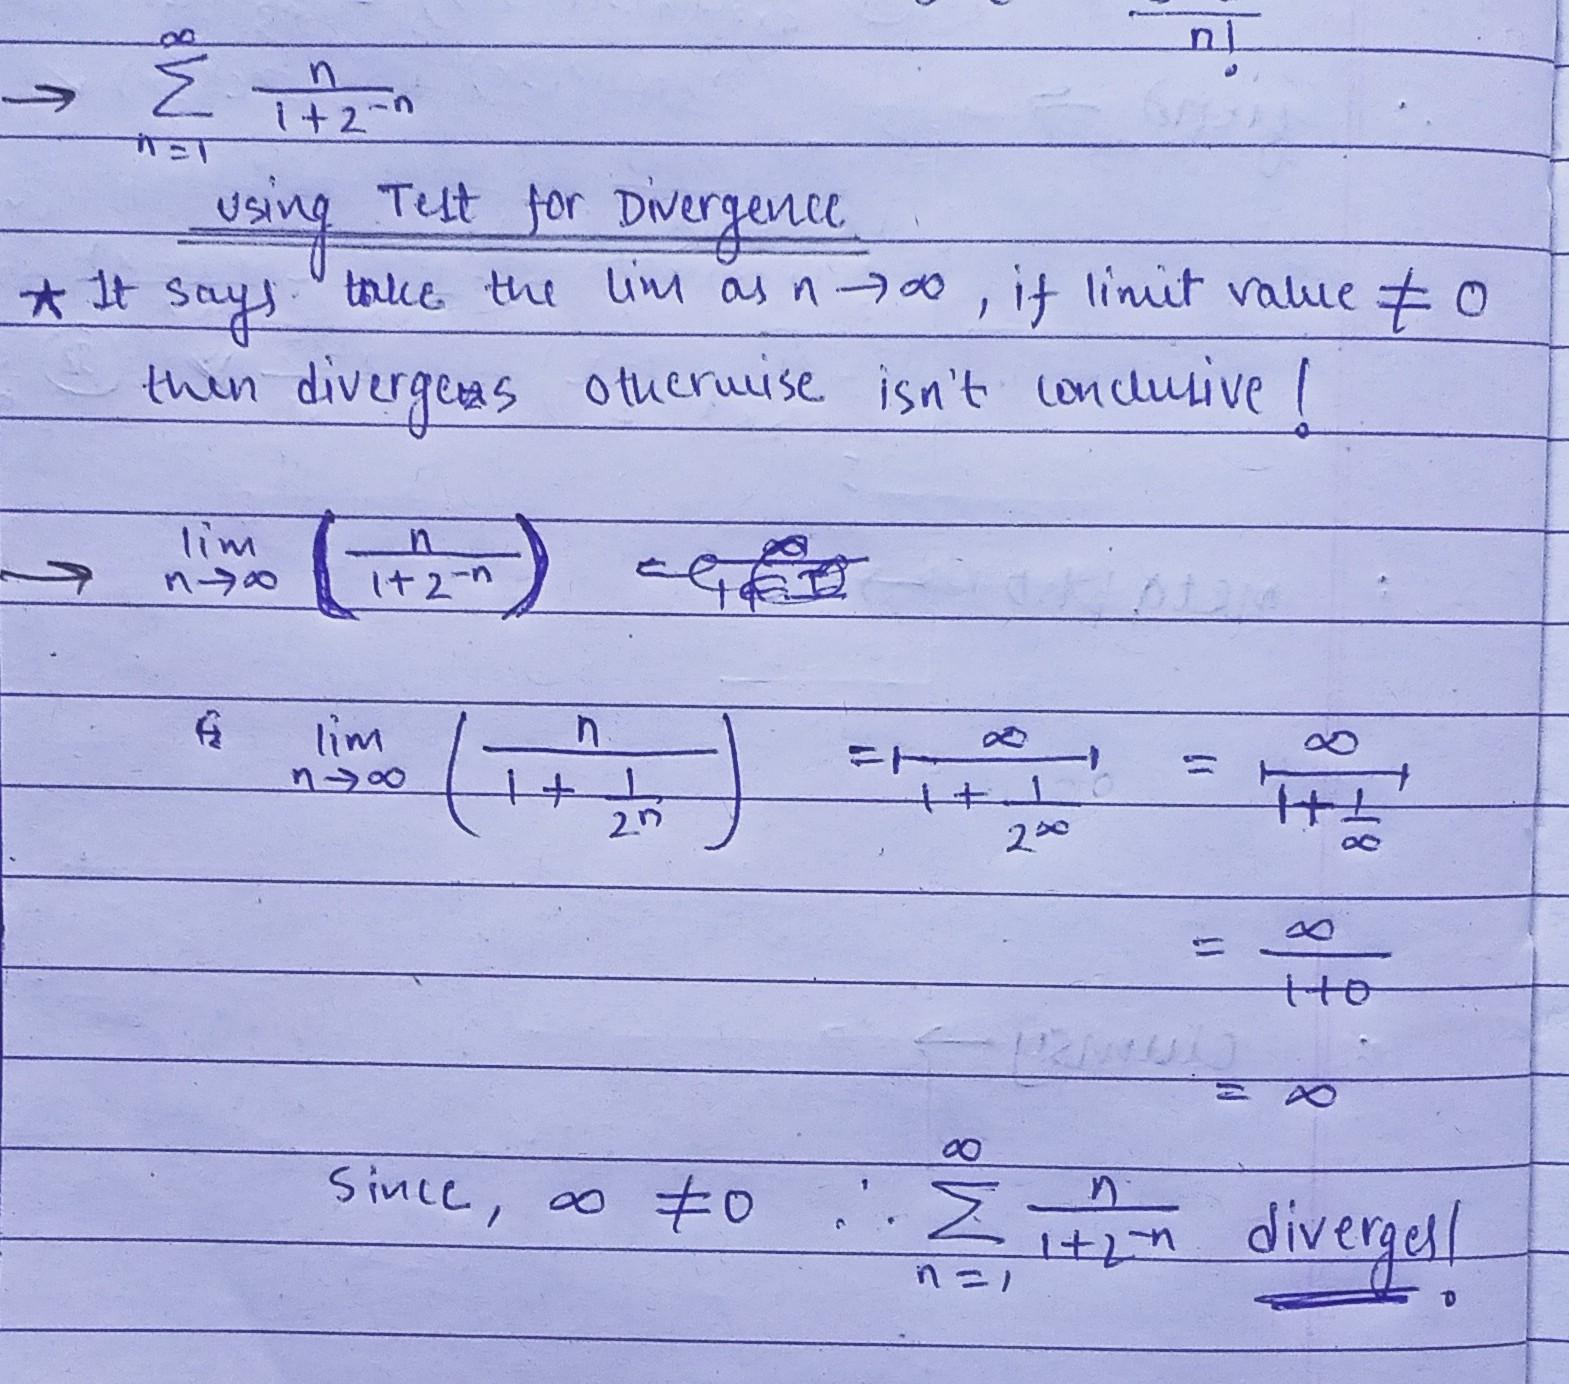 n!
→ ∞ Σ n=1 n/(1+2^-n)
Using Test for Divergence
★ It says take the lim as n→∞, if limit value ≠ 0
then diverges otherwise isn't conclusive!
→ lim n→∞ (n/(1+2^-n)) =
lim n→∞ (n/(1+1/2^n)) = ∞/(1+1/2^∞) = ∞/(1+1/∞)
= ∞/(1+0)
= ∞
Since, ∞ ≠ 0 ∴ ∞ Σ n=1 n/(1+2^-n) diverges!